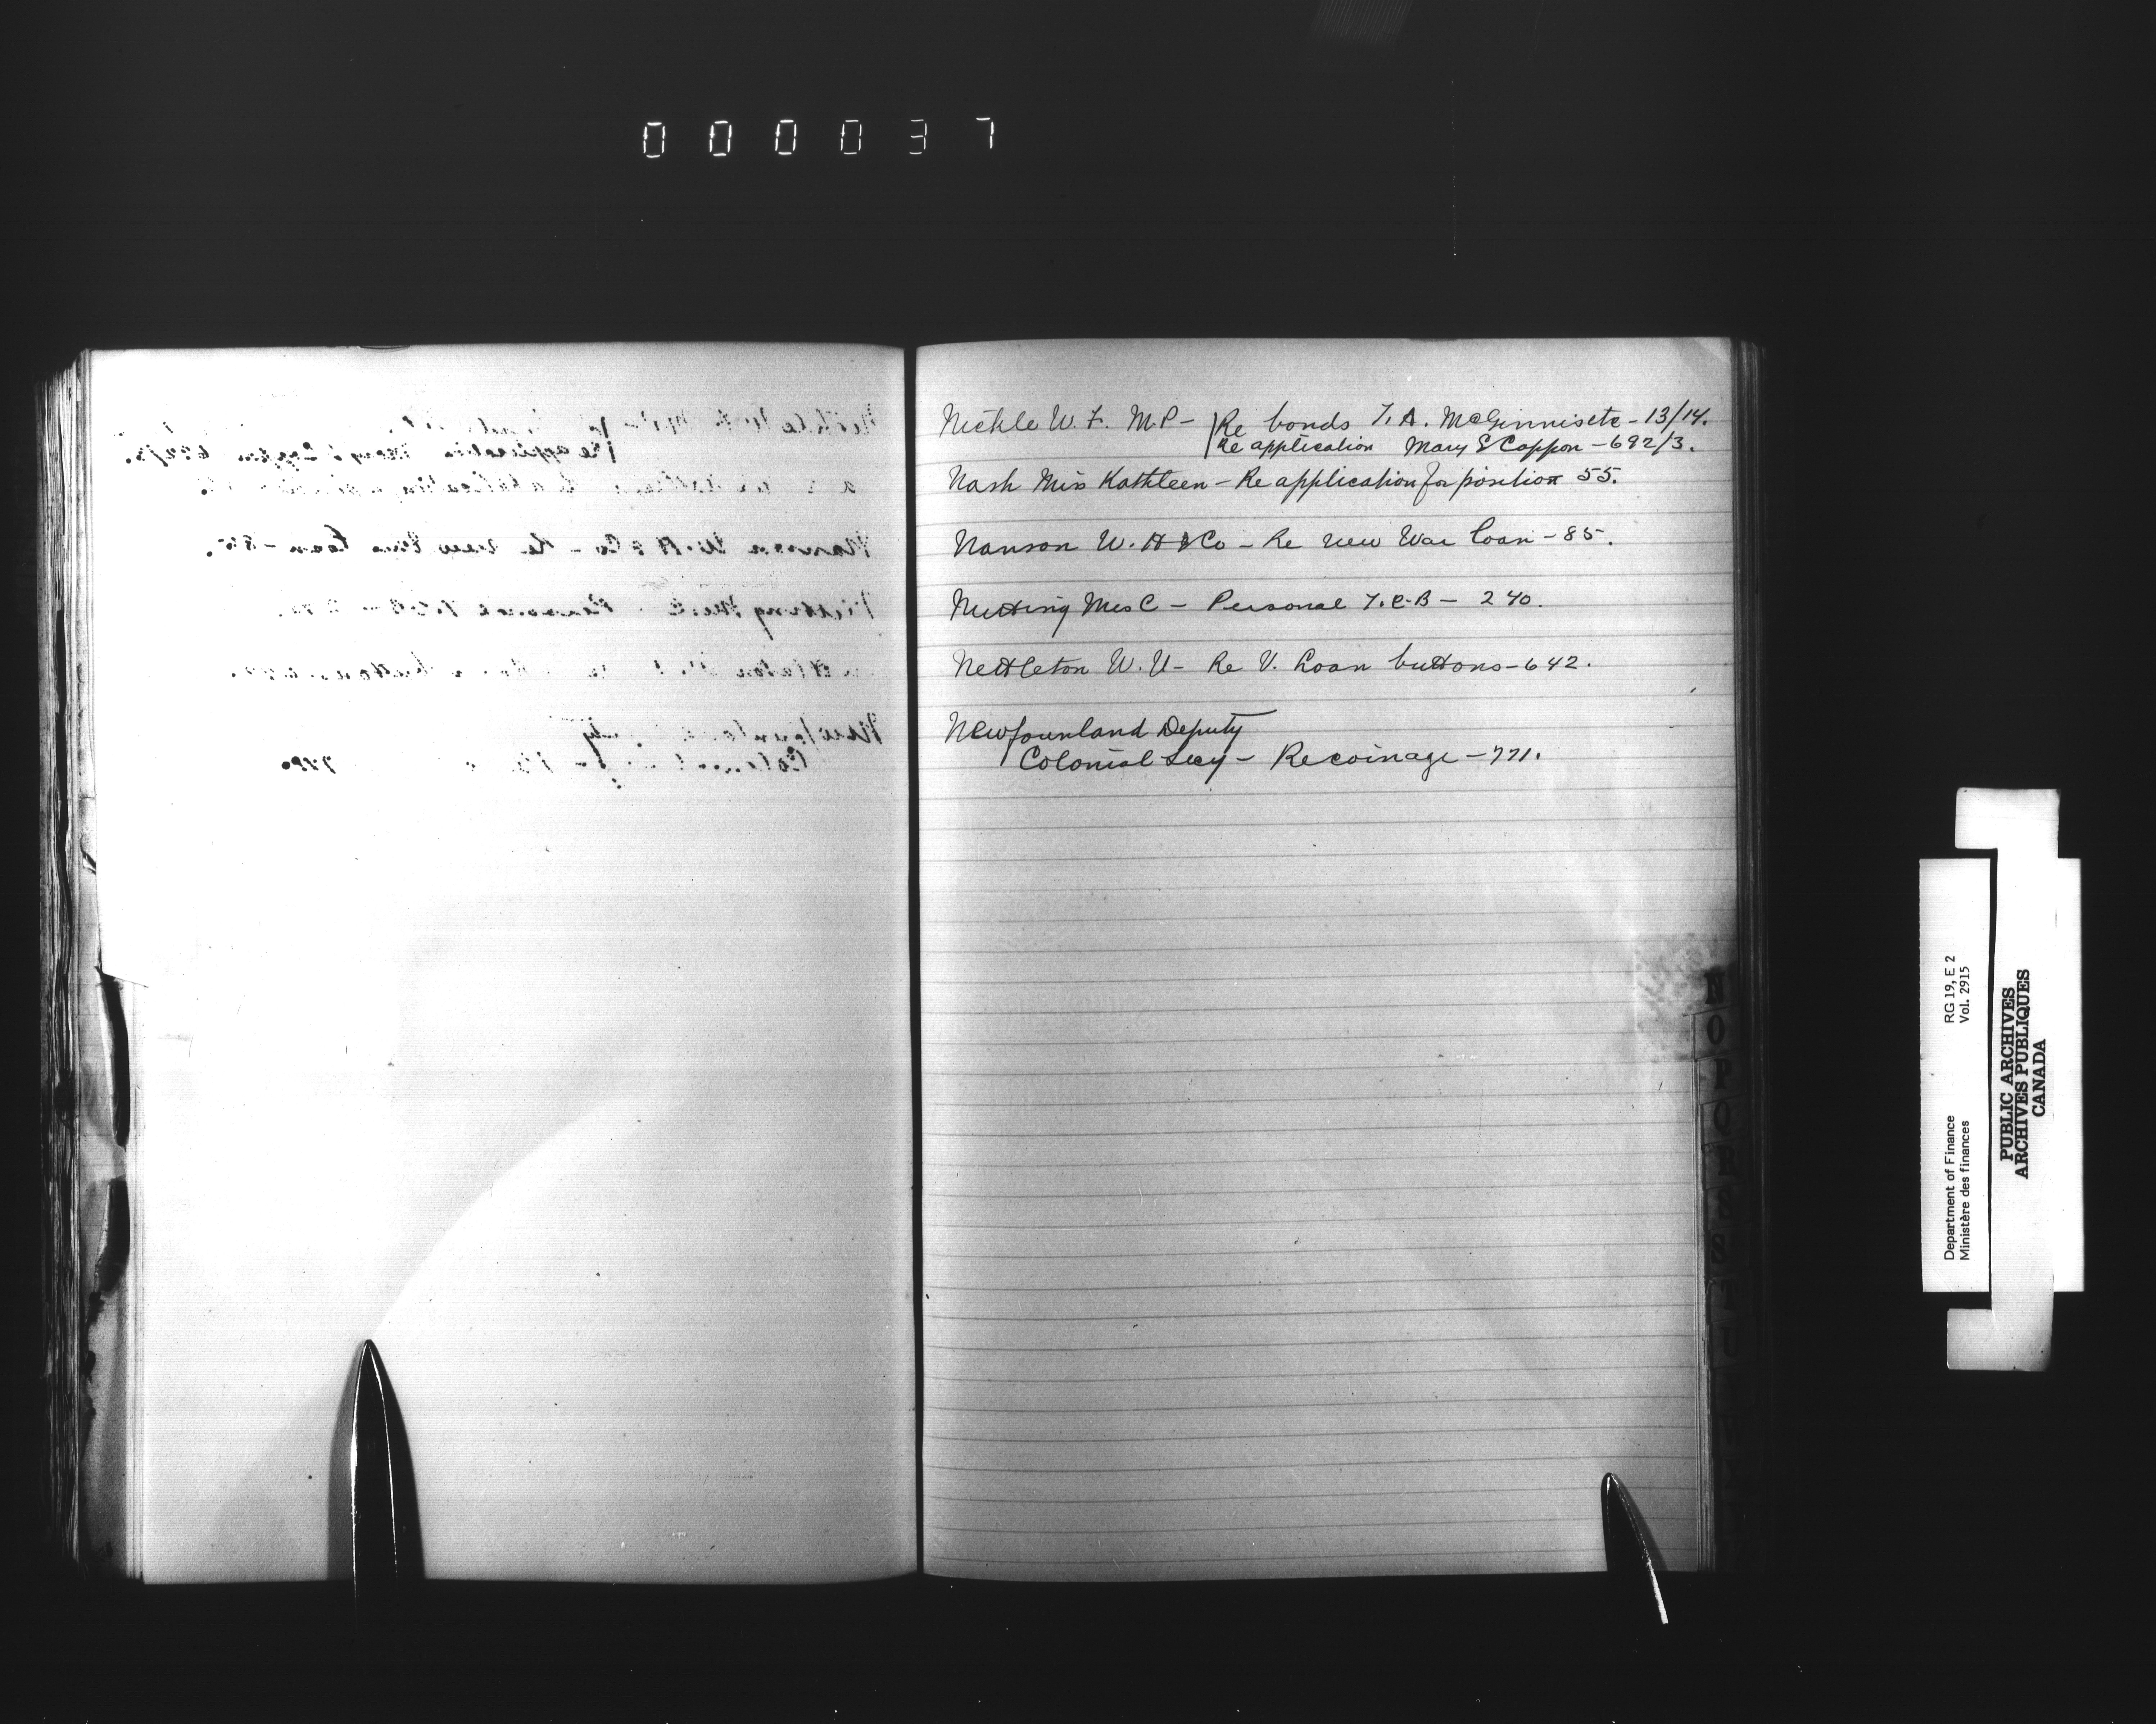 000037
Nickle W. F. M.P - Re bonds T. A. McGinnis etc - 13/14.
Re application Mary E Coppon - 692/3.
Nash Miss Kathleen - Re application for position 55.
Nanson W. H & Co - Re new War Loan - 85.
Nutting Mrs C - Personal T.C.B - 240.
Nettleton W. U - Re V. Loan buttons - 642.
Newfounland Deputy
Colonial Secy - Re coinage - 771.
N
O
P
Q
R
S
Department of Finance RG 19, E 2
Ministère des finances Vol. 2915
PUBLIC ARCHIVES
ARCHIVES PUBLIQUES
CANADA